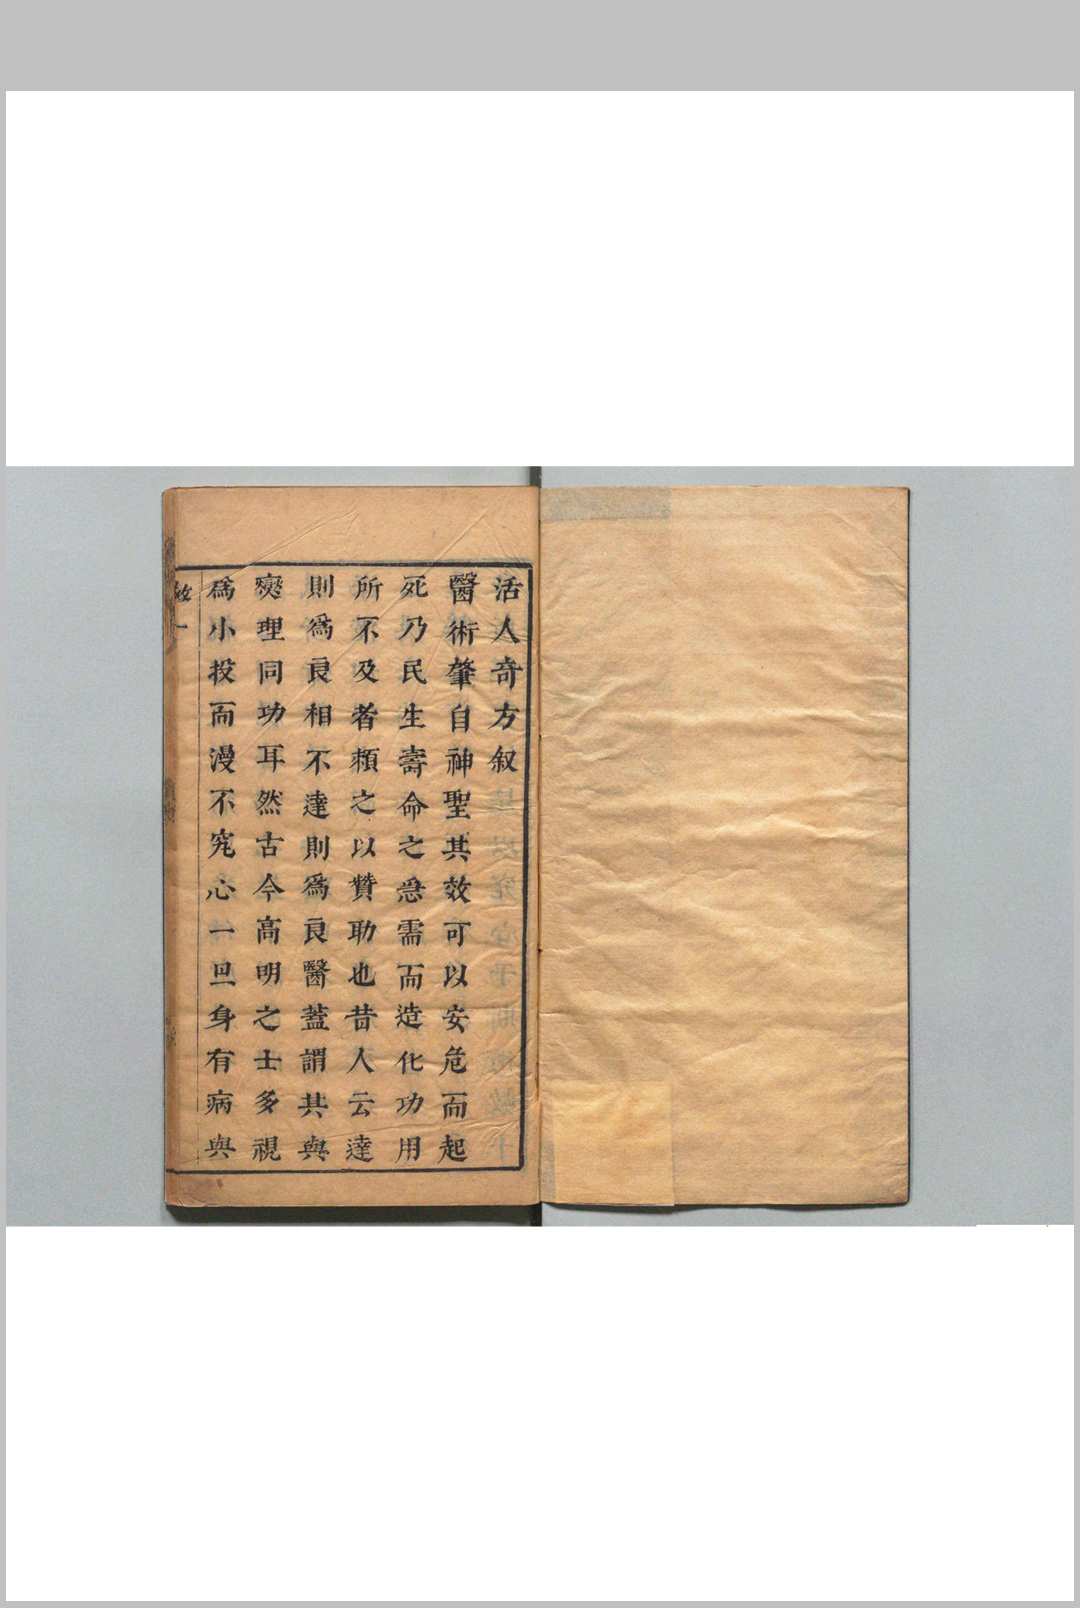 活人奇方叙
醫術肇自神聖其效可以安危而起
死乃民生壽命之急需而造化功用
所不及者頼之以贊助也昔人云達
則爲良相不達則爲良醫蓋謂其與
爕理同功耳然古今高明之士多視
爲小投而漫不究心一旦身有病與
叙一